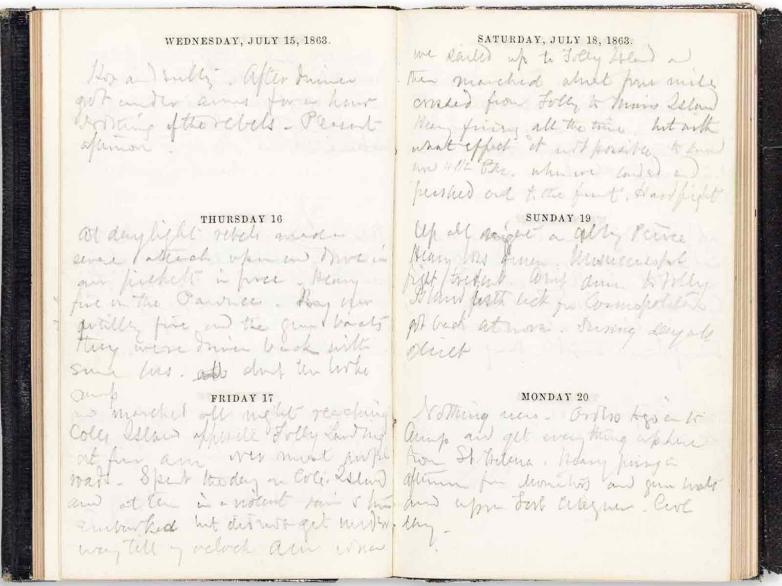 WEDNESDAY, JULY 15, 1863.
Hot and sultry. After dinner
got under arms for an hour
of the rebels - Pleasant
afternoon.
THURSDAY 16
At daylight rebels made a
attack upon and drove in
our pickets in force. Heavy
fire on the Pawnee. our
artillery fire and the gun boats
they were driven back with
some loss. about ten
FRIDAY 17
and marched all night reaching
Coles Island opposite Folly Landing
at four am over most
roads. Spent the day on Coles Island
and at ten in a violent rain storm
embarked but did not get under
way till 7 oclock am when
SATURDAY, JULY 18, 1863.
we sailed up to Folly Island and
then marched about four miles
crossed from Folly to Morris Island
Heavy firing all the time but with
what effect it not possible to
when we landed and
pushed out to the front. Hard fight
SUNDAY 19
Up all night
Heavy loss Unsuccessful
fight down to Folly
Island with for Cosmopolitan
got back at noon. During day all
quiet
MONDAY 20
Nothing new. Orders to go to
Camp and get everything up here
from St. Helena. Heavy firing in
afternoon from Monitors and gun boats
upon Fort Wagner. Cool
day.